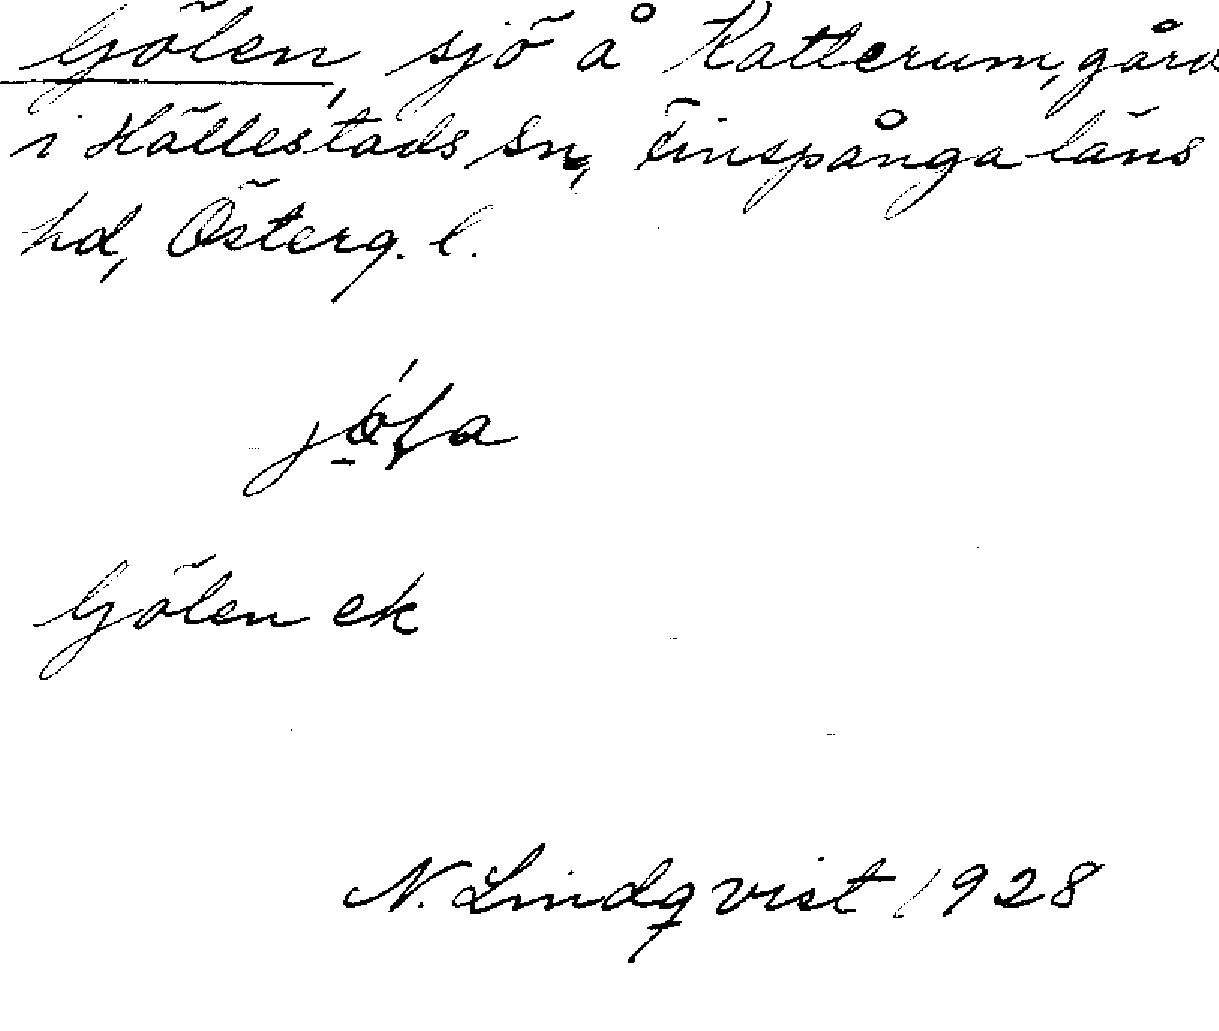 Gölen, sjö å Katterum, gård
i Hällestads sn, Finspånga läns
hd, Österg. l.
Gölen ek
N. Lindqvist 1928